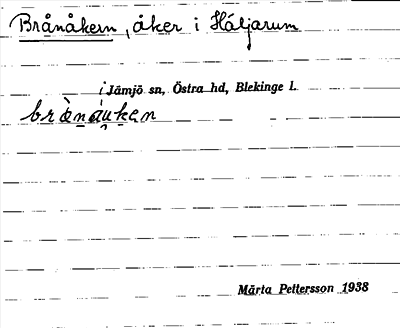 Brånåkern, åker i Häljarum
i Jämjö sn, Östra hd, Blekinge l.
Märta Pettersson 1938